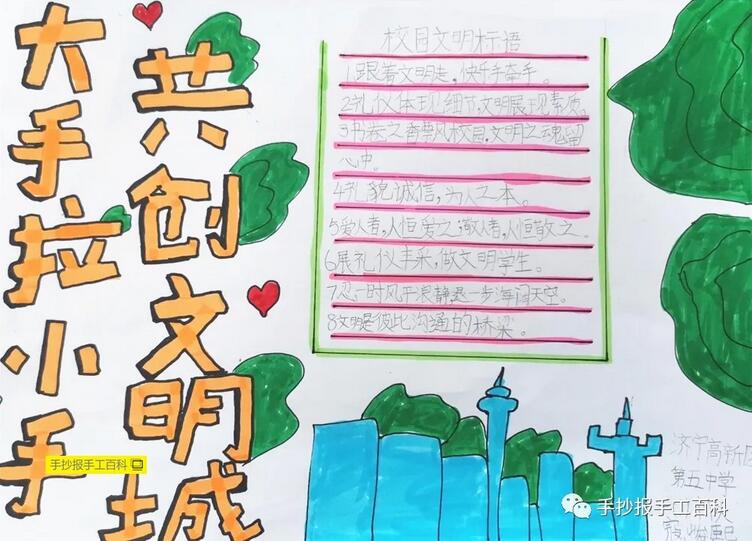 大手拉小手
共创文明城
校园文明标语
1.跟着文明走，快乐手牵手。
2礼仪体现细节，文明展现素质。
3书卷之香飘风校园，文明之魂留
心中。
4礼貌诚信，为人之本。
5爱人者，人恒爱之；敬人者，人恒敬之。
6展礼仪丰采，做文明学生。
7忍一时风平浪静退一步海阔天空。
8文明是彼此沟通的桥梁。
手抄报手工百科
济宁高新区
第五中学
手抄报手工百科